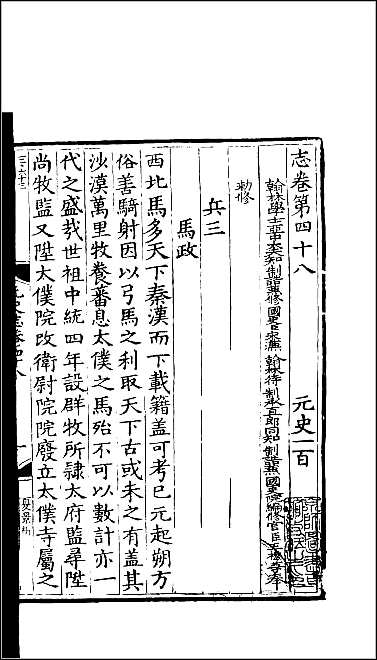 志卷第四十八　元史一百
翰林學士亞中大夫知制誥兼修國史臣宋濂 翰林待制承直郎同知制誥兼國史院編修官臣王禕等奉
勑修
兵三
馬政
西北馬多天下秦漢而下載籍蓋可考已元起朔方
俗善騎射因以弓馬之利取天下古或未之有蓋其
沙漠萬里牧養蕃息太僕之馬殆不可以數計亦一
代之盛哉世祖中統四年設群牧所隷太府監尋陞
尚牧監又陞太僕院改衛尉院院廢立太僕寺屬之